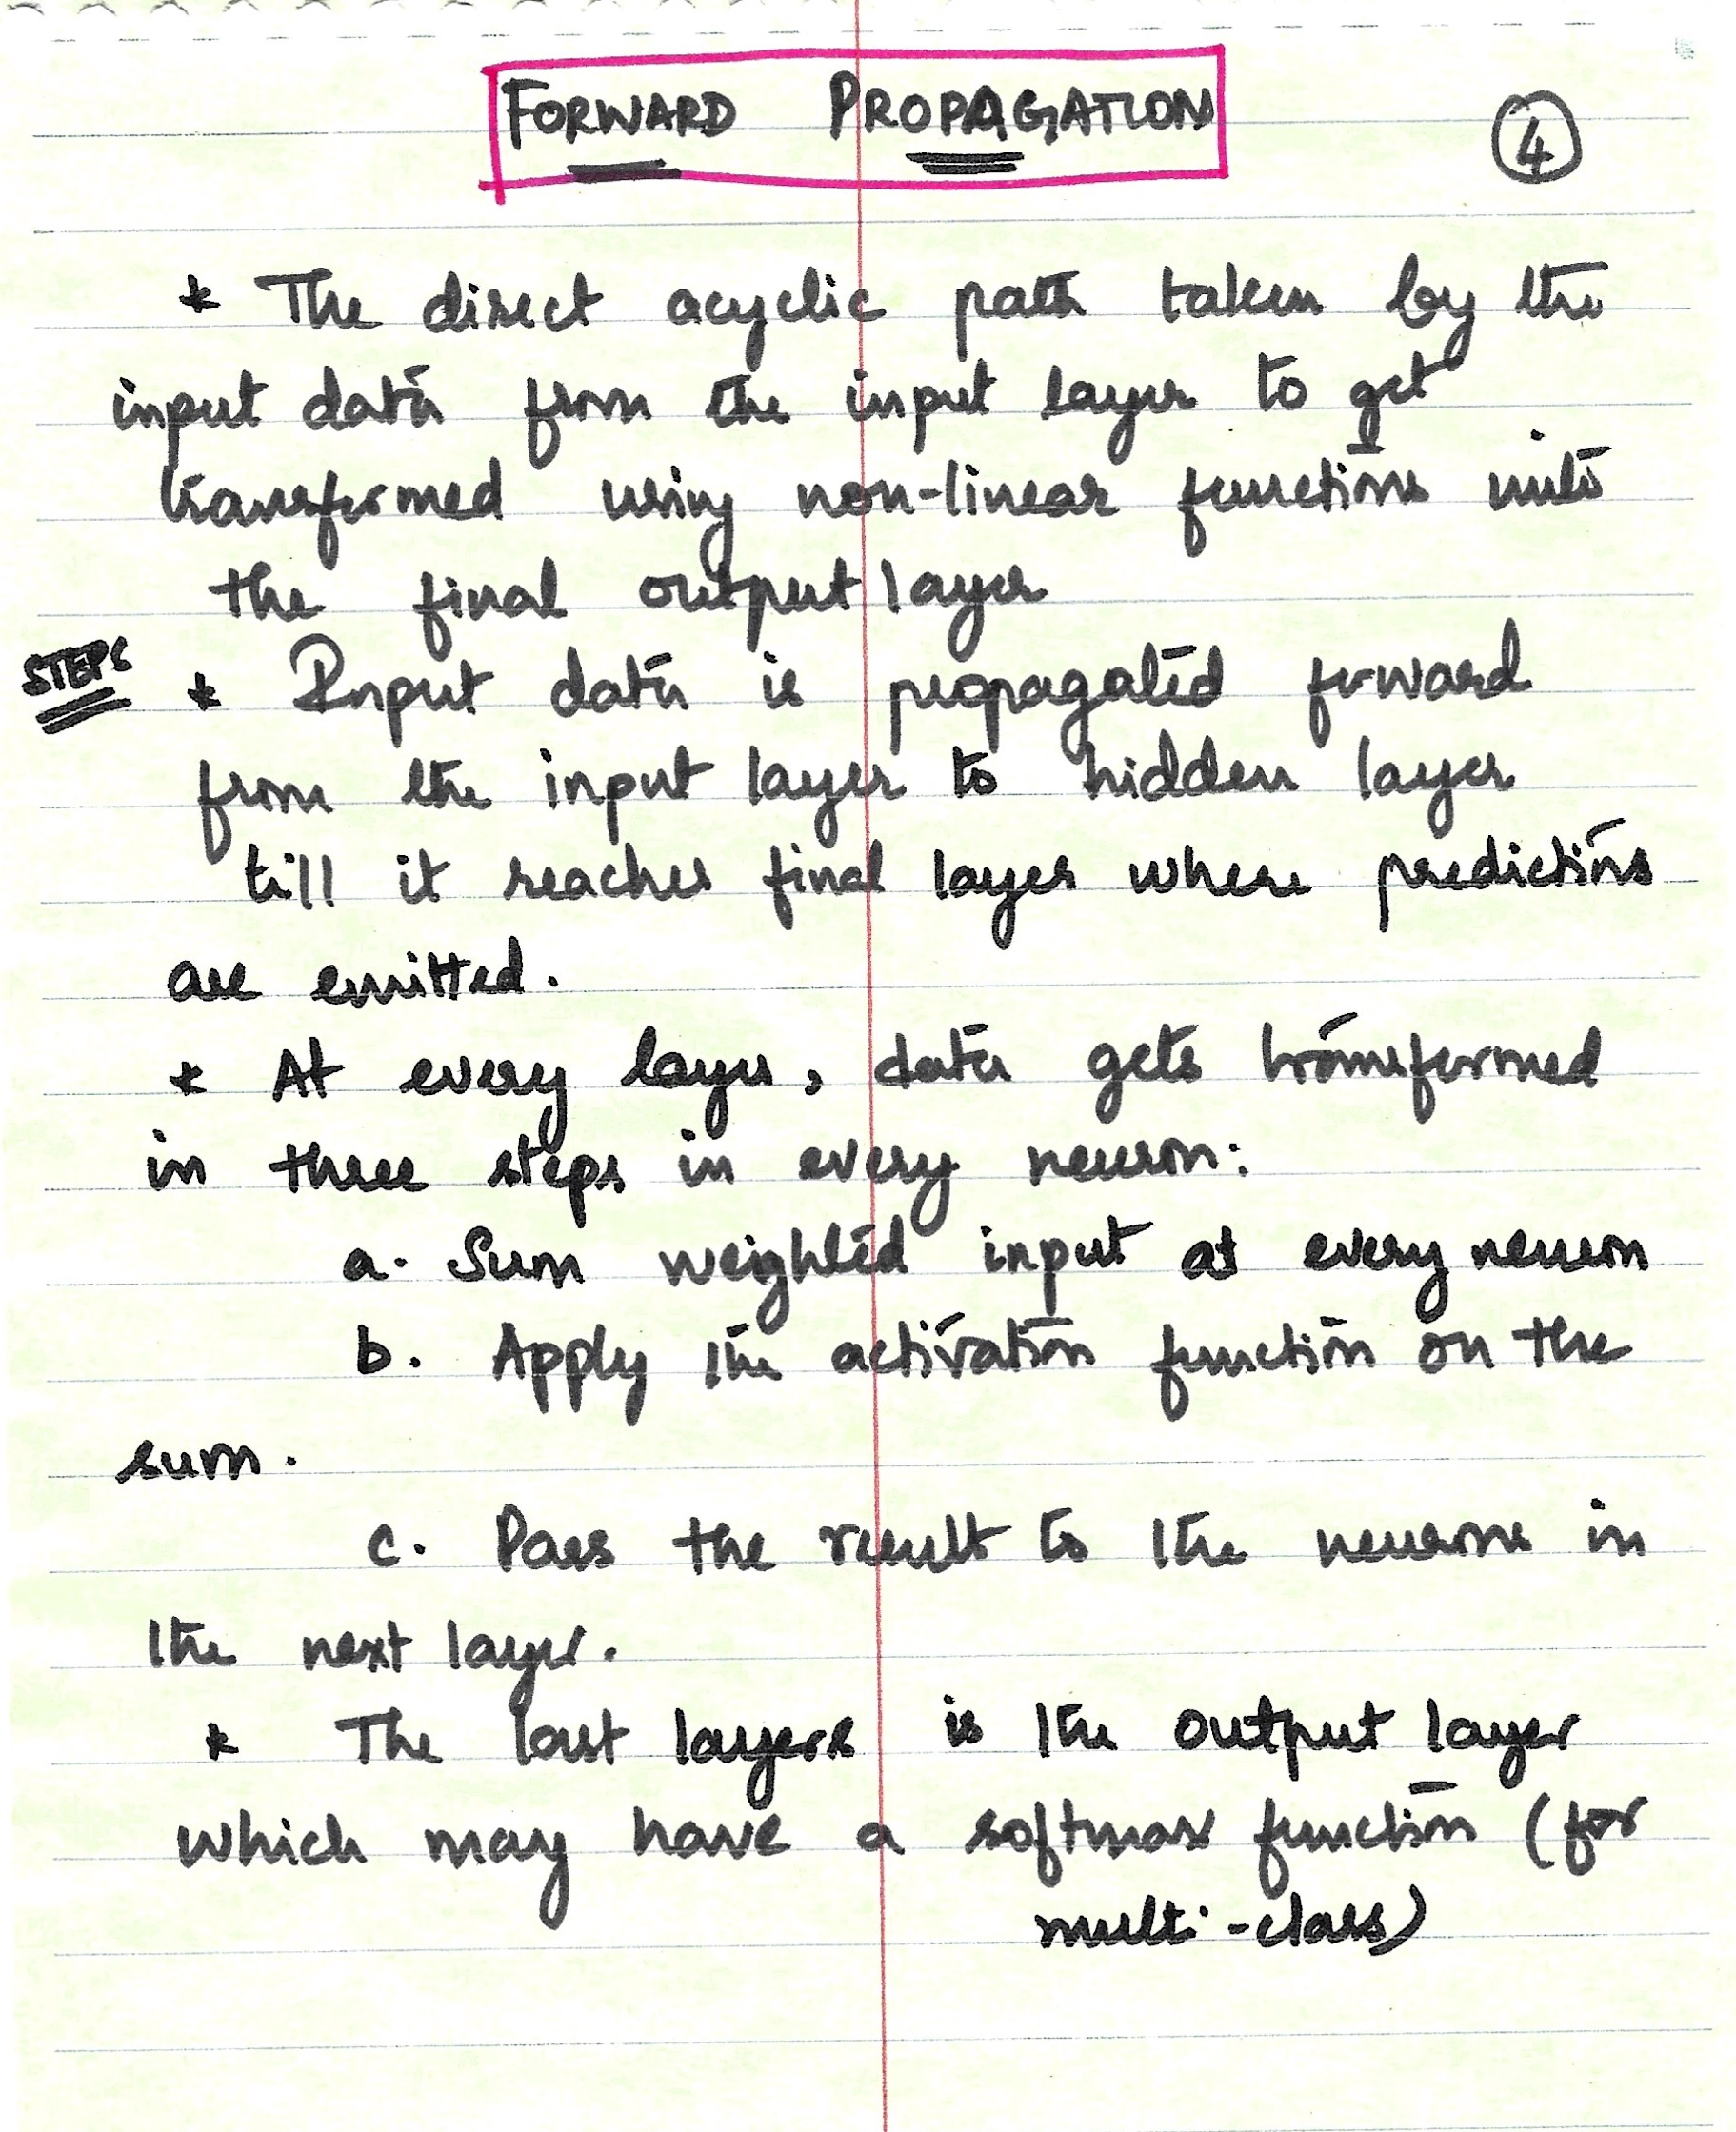 FORWARD PROPAGATION
4
* The direct acyclic path taken by the
input data from the input layer to get
transformed using non-linear functions into
the final output layer
STEPS
* Input data is propagated forward
from the input layer to hidden layer
till it reaches final layer where predictions
are emitted.
* At every layer, data gets transformed
in three steps in every neuron:
a. Sum weighted input at every neuron
b. Apply the activation function on the
sum.
c. Pass the result to the neurons in
the next layer.
* The last layers is the output layer
which may have a softmax function (for
multi-class)